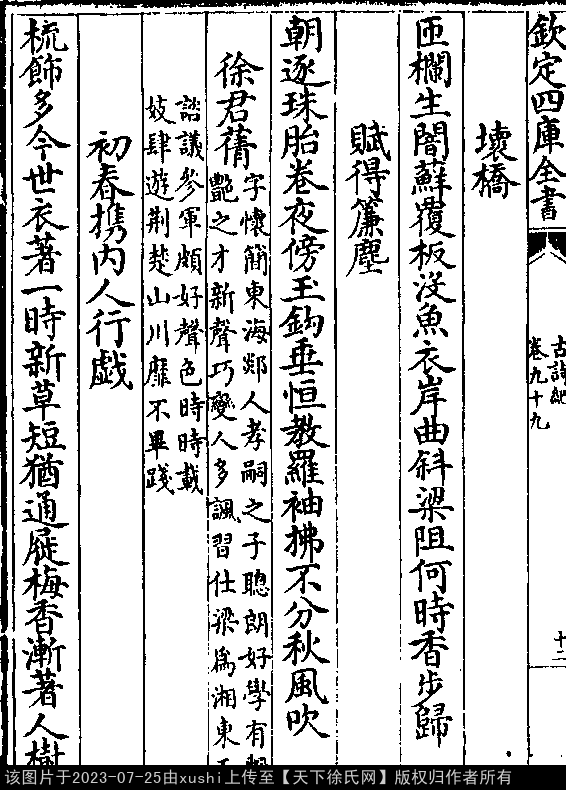 欽定四庫全書
古詩紀
卷九十九
十二
壞橋
匝欄生闇蘚覆板沒魚衣岸曲斜梁阻何時香步歸
賦得簾塵
朝逐珠胎卷夜傍玉鈎垂恒教羅袖拂不分秋風吹
徐君蒨
字懷簡東海郯人孝嗣之子聰朗好學有
豔之才新聲巧變人多諷習仕梁爲湘東
諮議參軍頗好聲色時時載
妓肆遊荆楚山川靡不畢踐
初春攜内人行戲
梳飾多今世衣著一時新草短猶通屧梅香漸著人樹
该图片于2023-07-25由xushi上传至【天下徐氏网】版权归作者所有